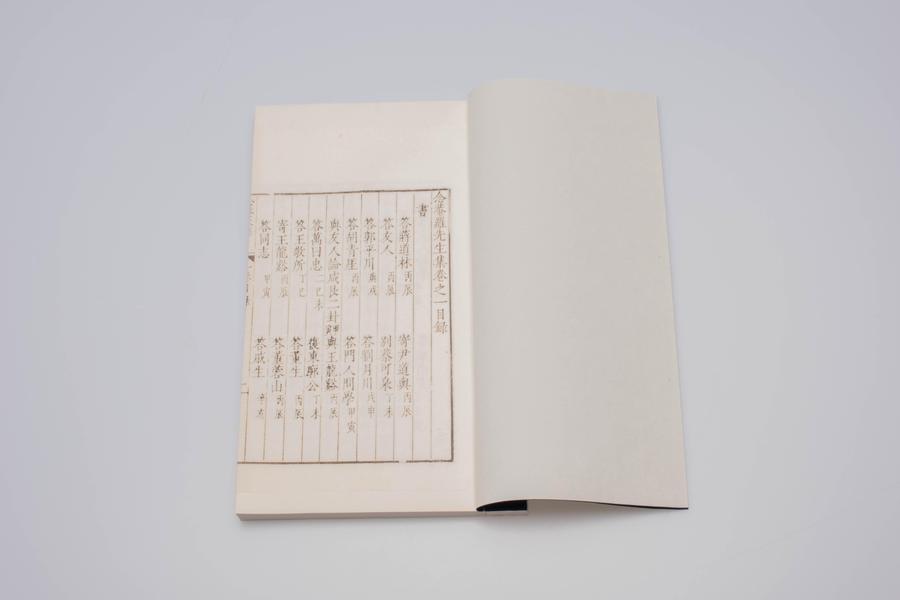 念菴羅先生集卷之一目錄
書
答蔣道林丙辰 寄尹道輿丙辰
答友人 丙辰 別蔡可泉丁未
答郭平川庚戌 答劉月川戊申
答胡青厓丙辰 答門人問學甲寅
與友人論成艮二封師與王龍谿丙辰
答萬曰忠二己未 復東廓公丁未
答王敬所丁巳 答董生 丙辰
寄王龍谿丙辰 答董蓉山丙辰
答同志 甲寅 答戚生